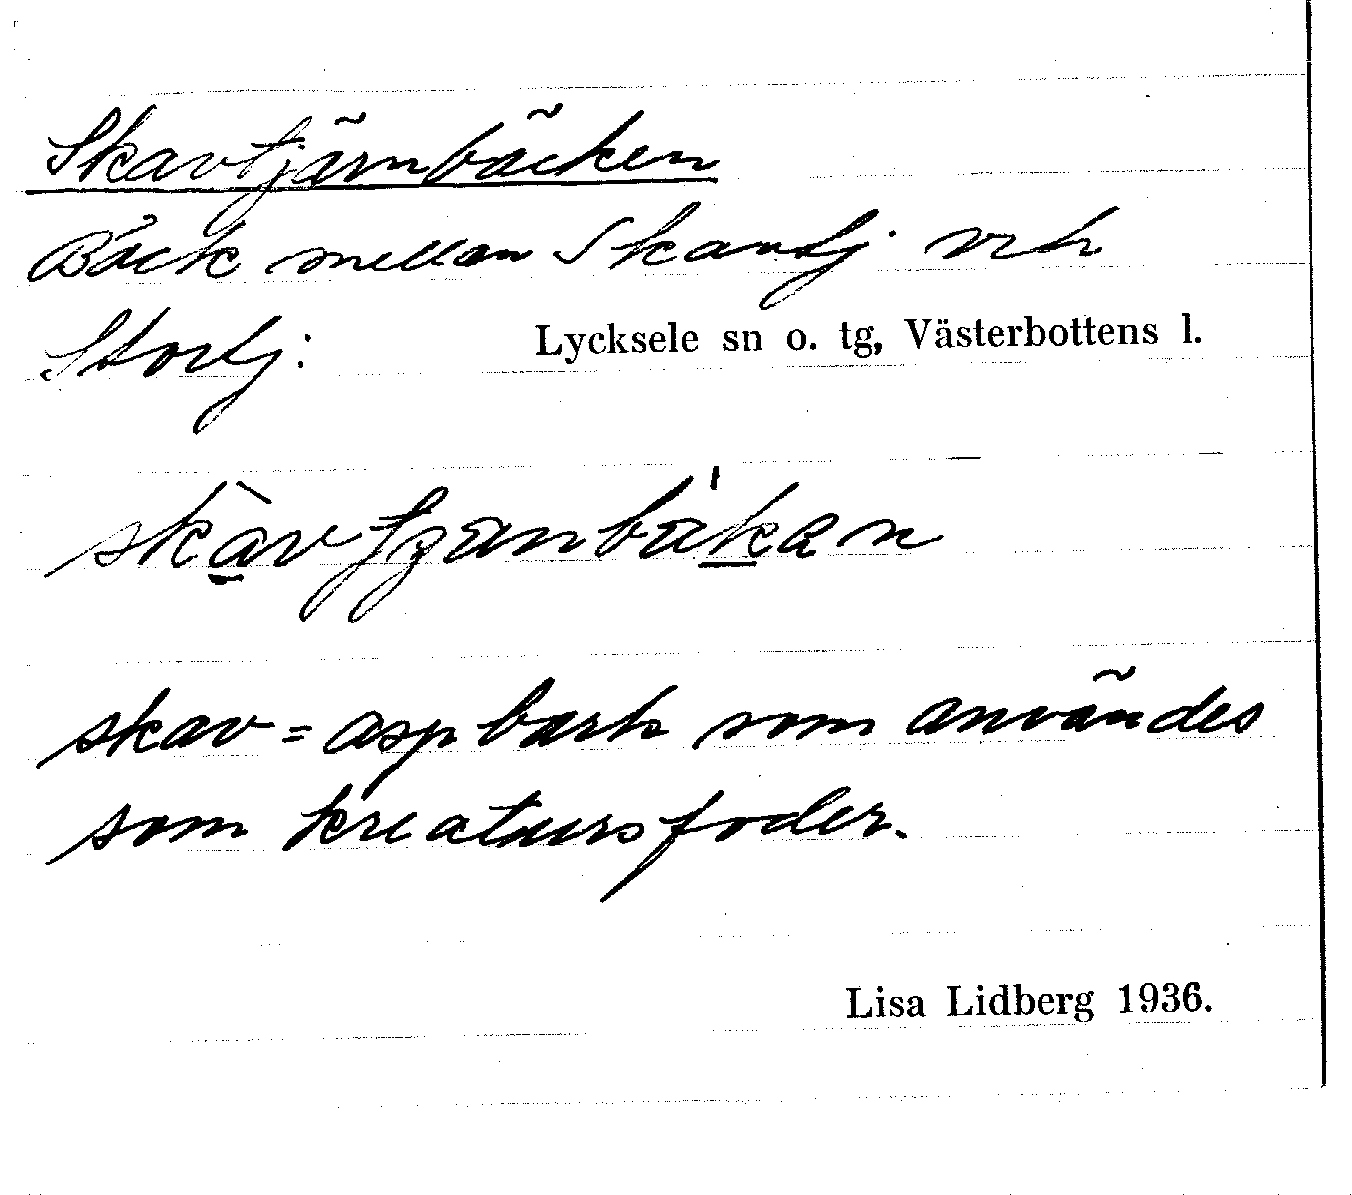 Skavtjärnbäcken
Bäck mellan Skavtj. och
Stortj.
Lycksele sn o. tg, Västerbottens l.
skàvtjänbäkan
skav = aspbark som användes
som kreatursfoder.
Lisa Lidberg 1936.